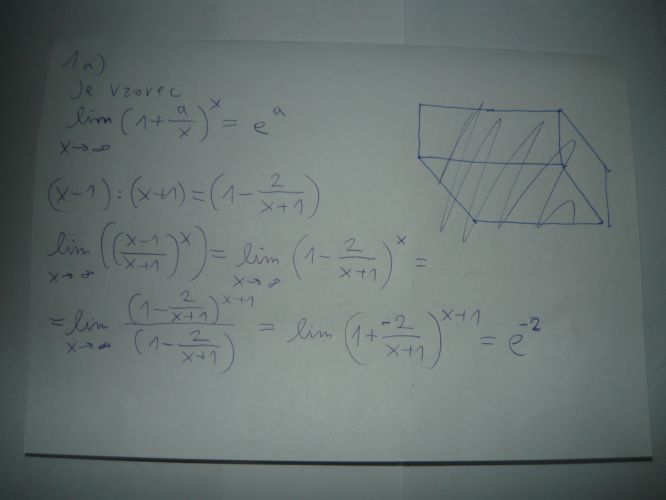 1a)
Je vzorec
lim x→∞ (1 + a/x)^x = e^a
(x-1) : (x+1) = (1 - 2/(x+1))
lim x→∞ (((x-1)/(x+1))^x) = lim x→∞ (1 - 2/(x+1))^x =
= lim x→∞ (1 - 2/(x+1))^(x+1) / (1 - 2/(x+1)) = lim (1 + -2/(x+1))^(x+1) = e^-2